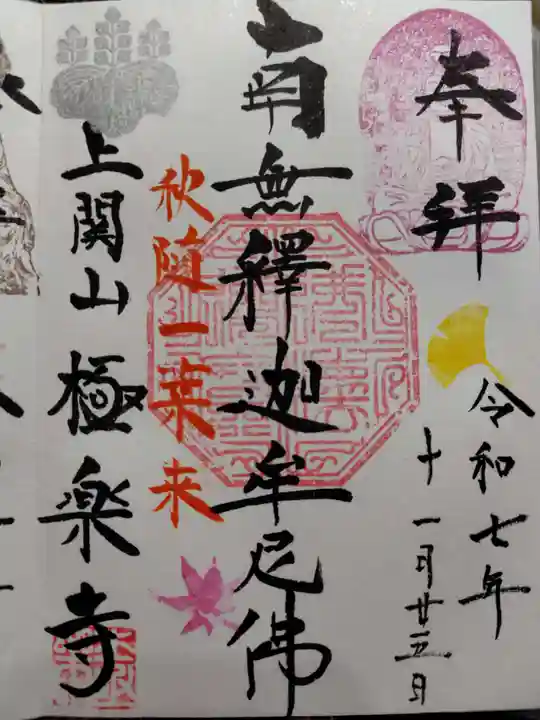 奉拝
令和七年
十一月廿五日
南無釋迦牟尼佛
秋随一葉来
上関山極楽寺